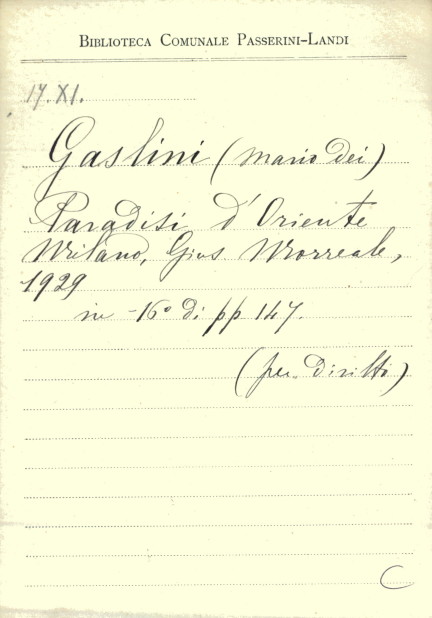 BIBLIOTECA COMUNALE PASSERINI-LANDI
17. XI.
Gaslini (Mario Dei)
Paradisi d'Oriente
Milano, Gius Morreale,
1929
in -16° di pp 147.
(per diritto)
C